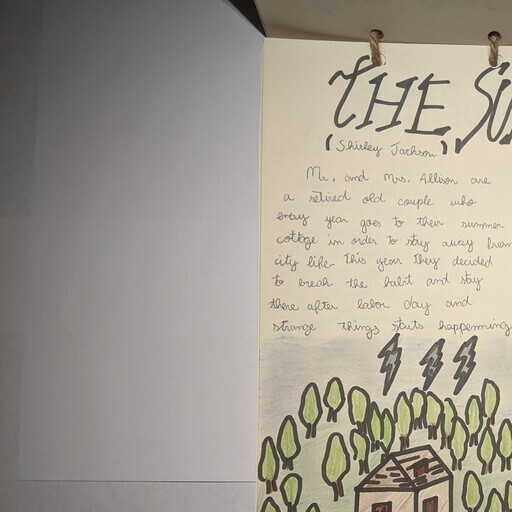 THE SU
(Shirley Jackson)
Mr. and Mrs. Allison are
a retired old couple who
every year goes to their summer
cottage in order to stay away from
city life. This year they decided
to break the habit and stay
there after labor day and
strange things starts happenning